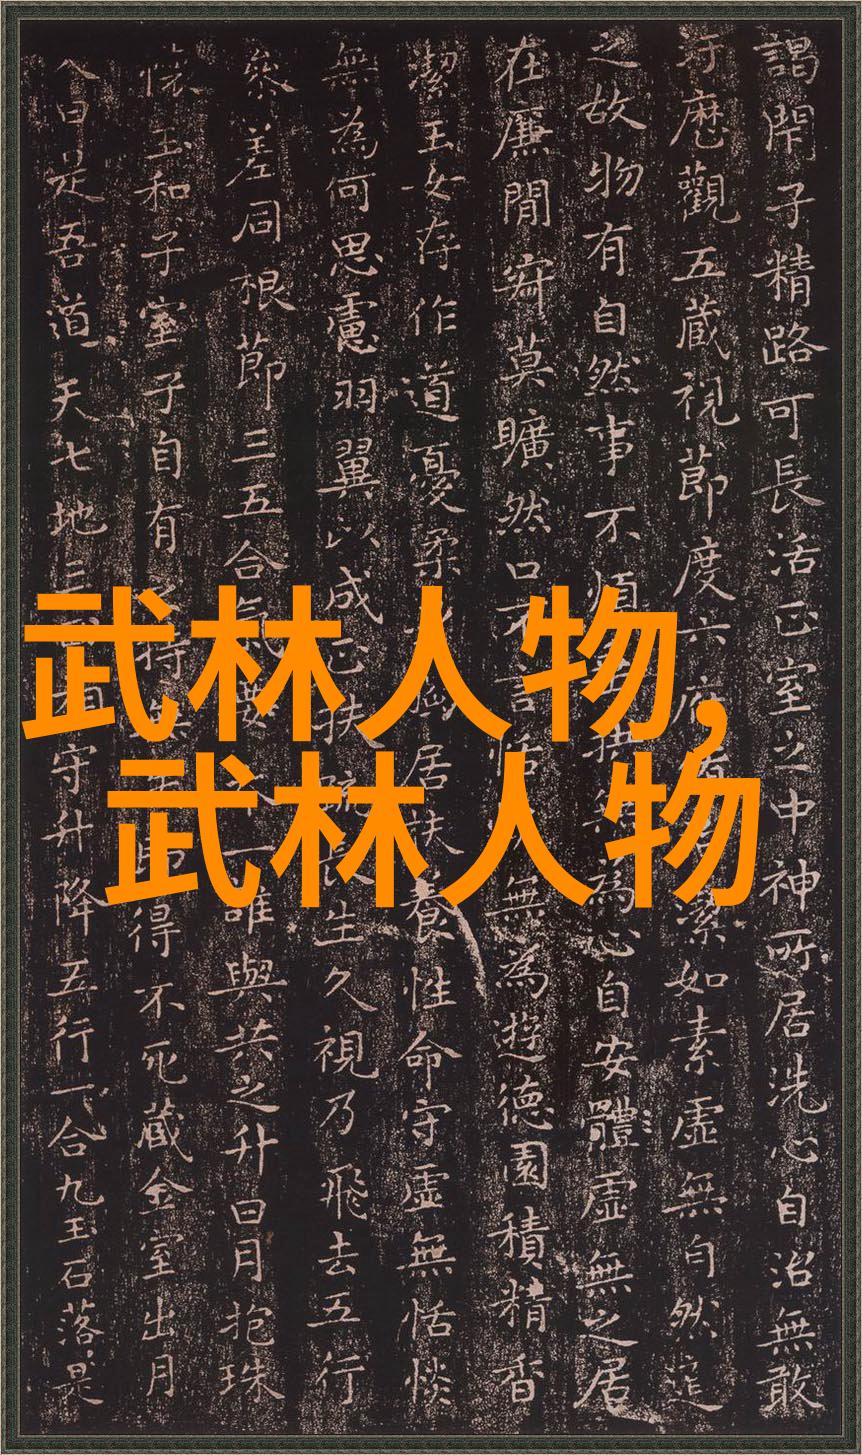 武林人物,
武林人物
謁閇子精路可長活正室之中神所居洗心自治無敢
汙歷觀五藏視節度六府潔如素虛無自然道
之故物有自然事不煩無為心自安體虛無之居
在廉間寂莫曠然口不言恬無為遊德園積精香
潔玉女存作道憂柔居扶養性命守虛無恬惔
無為何思慮羽翼以成正扶疏長生久視乃飛去五行
參差同根節三五合氣要本一誰與共之升日月抱珠
懷玉和子室子自有持無得不死藏金室出月
入日是吾道天七地三相守升降五行一合九玉石落〻是